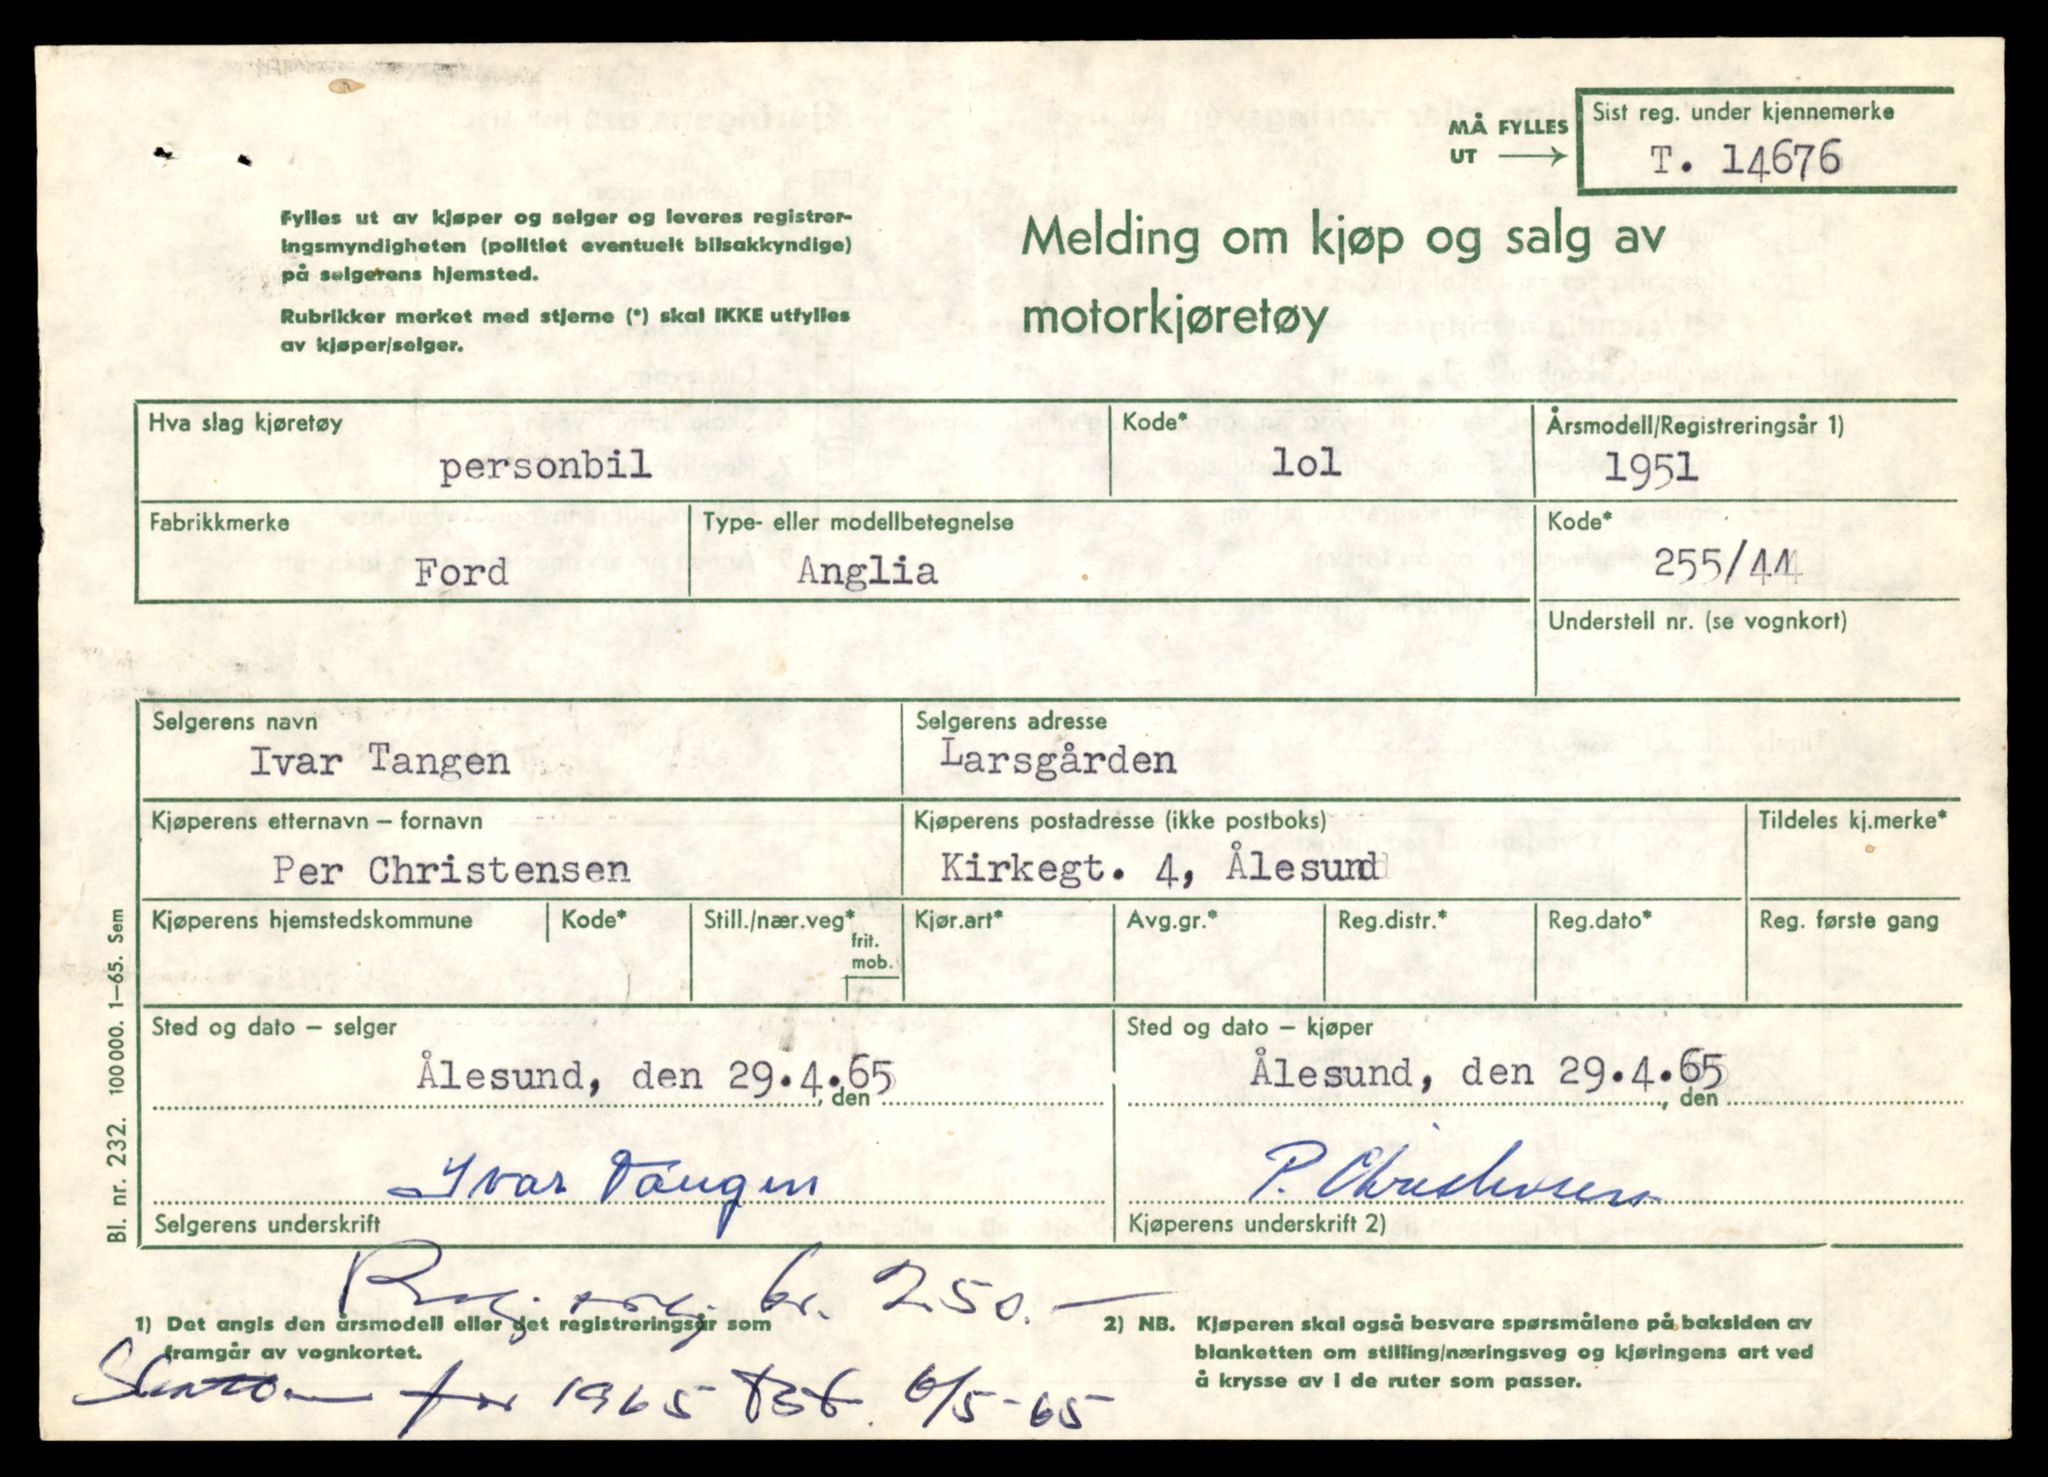 MÅ FYLLES
UT →
Sist reg. under kjennemerke
T. 14676
Fylles ut av kjøper og selger og leveres registrer-
ingsmyndigheten (politiet eventuelt bilsakkyndige)
på selgerens hjemsted.
Rubrikker merket med stjerne (*) skal IKKE utfylles
av kjøper/selger.
Melding om kjøp og salg av
motorkjøretøy
Hva slag kjøretøy
personbil
Kode*
lol
Årsmodell/Registreringsår 1)
1951
Fabrikkmerke
Ford
Type- eller modellbetegnelse
Anglia
Kode*
255/44
Understell nr. (se vognkort)
Selgerens navn
Ivar Tangen
Selgerens adresse
Larsgården
Kjøperens etternavn – fornavn
Per Christensen
Kjøperens postadresse (ikke postboks)
Kirkegt. 4, Ålesund
Tildeles kj.merke*
Kjøperens hjemstedskommune
Kode*
Still./nær.veg*
frit.
mob.
Kjør.art*
Avg.gr.*
Reg.distr.*
Reg.dato*
Reg. første gang
Sted og dato – selger
Ålesund, den 29.4.65
, den
Sted og dato – kjøper
Ålesund, den 29.4.65
, den
Ivar Tangen
Selgerens underskrift
P. Christensen
Kjøperens underskrift 2)
Bl. nr. 232. 100 000. 1–65. Sem
kr. 250.—
1) Det angis den årsmodell eller det registreringsår som
framgår av vognkortet.
2) NB. Kjøperen skal også besvare spørsmålene på baksiden av
blanketten om stilling/næringsveg og kjøringens art ved
å krysse av i de ruter som passer.
for 1965 6/5-65